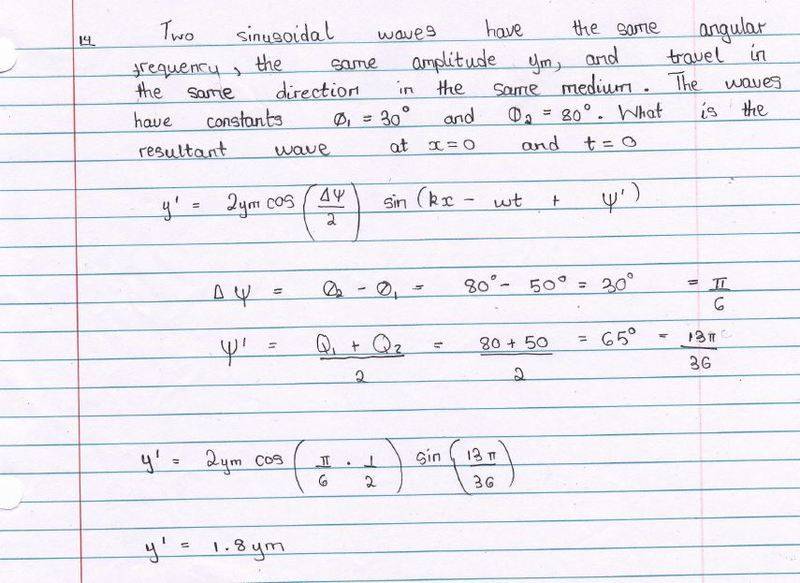 14 Two sinusoidal waves have the same angular
frequency, the same amplitude ym, and travel in
the same direction in the same medium. The waves
have constants Ø₁ = 30° and Φ₂ = 80°. What is the
resultant wave at x=0 and t=0
y' = 2ym cos (ΔΨ/2) sin (kx - wt + Ψ')
ΔΨ = Ø₂ - Ø₁ = 80° - 50° = 30° = π/6
Ψ' = (Q₁ + Q₂)/2 = (80 + 50)/2 = 65° = 13π/36
y' = 2ym cos (π/6 · 1/2) sin (13π/36)
y' = 1.8ym